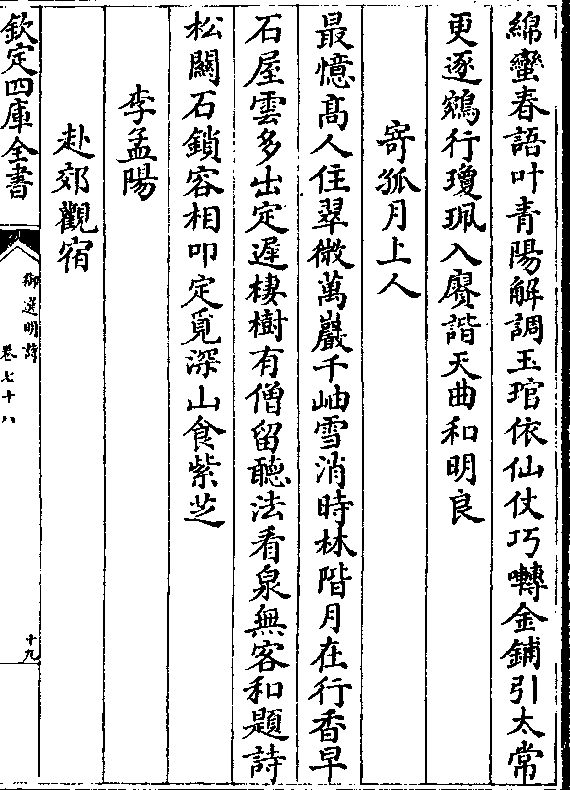 綿蠻春語叶青陽解調玉琯依仙仗巧囀金鋪引太常
更逐鵷行瓊珮入賡諧天曲和明良
寄孤月上人
最憶高人住翠微萬巖千岫雪消時林階月在行香早
石屋雲多出定遲棲樹有僧留聽法看泉無客和題詩
松關石鎖容相叩定覓深山食紫芝
李孟陽
赴郊觀宿
欽定四庫全書
御選明詩
卷七十八
十九